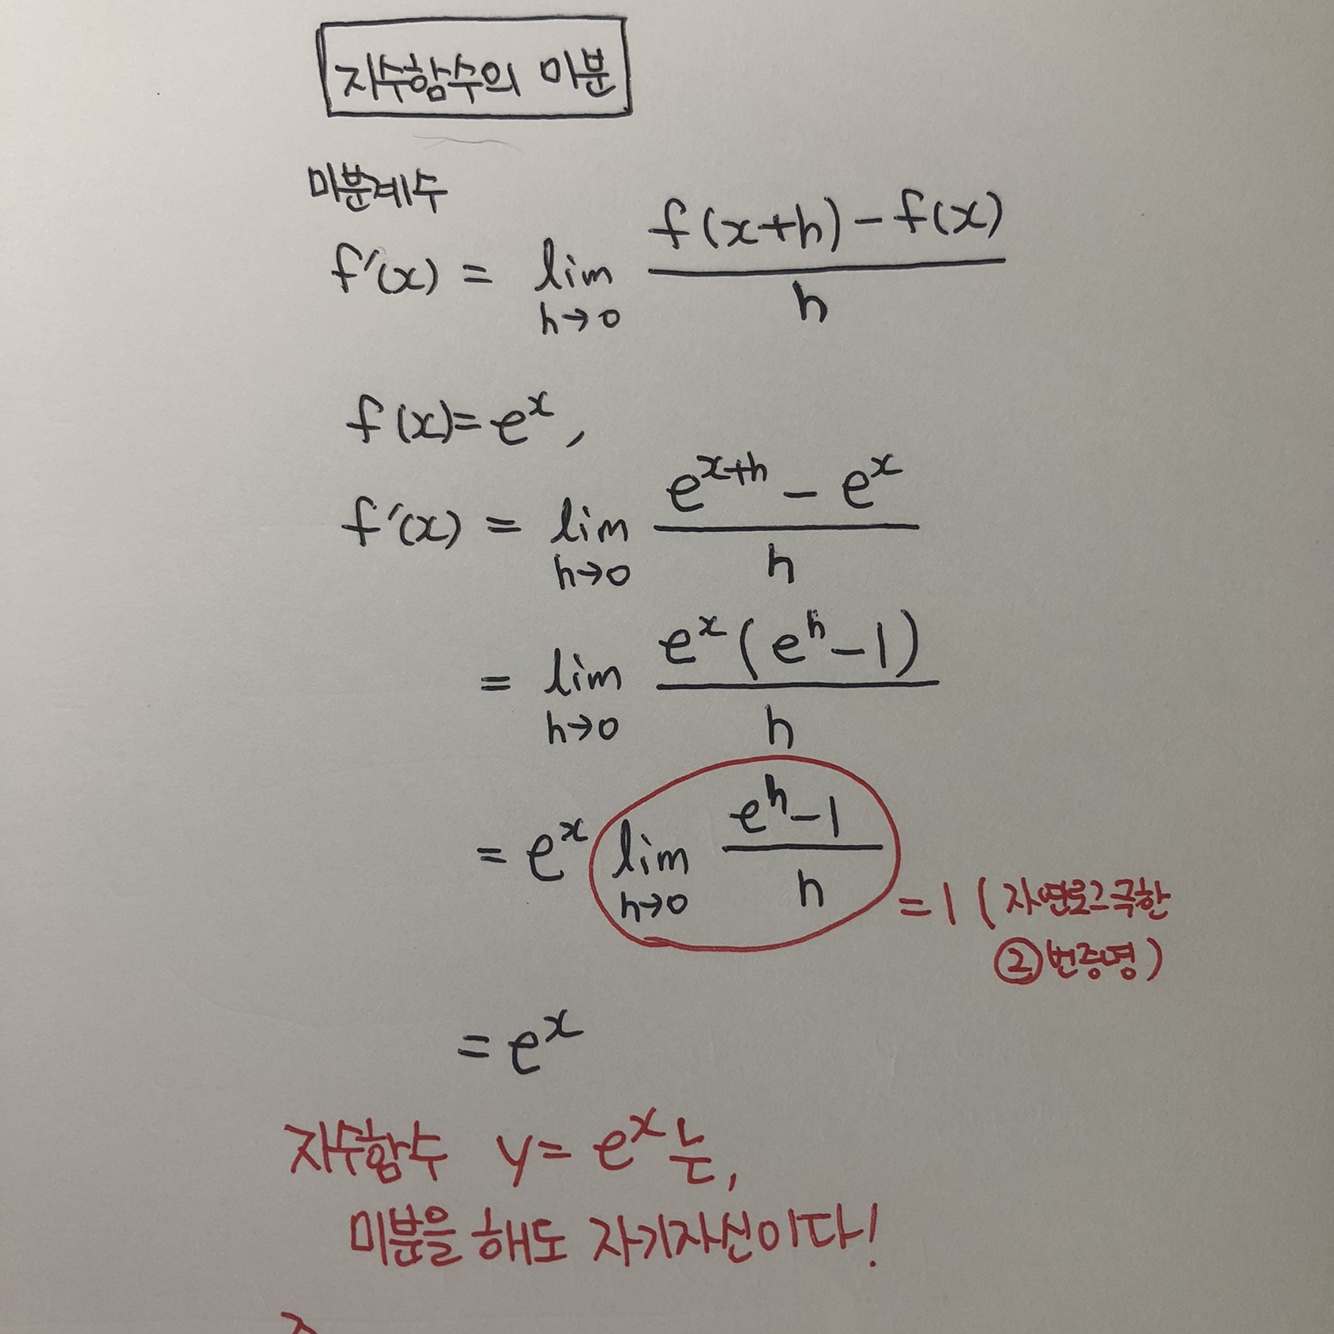 지수함수의 미분
미분계수
f'(x) = lim h→0 f(x+h)-f(x) / h
f(x)=eˣ,
f'(x) = lim h→0 eˣ⁺ʰ - eˣ / h
= lim h→0 eˣ(eʰ-1) / h
= eˣ lim h→0 eʰ-1 / h
=1 (자연로그극한
②번증명)
= eˣ
지수함수 y= eˣ는,
미분을 해도 자기자신이다!